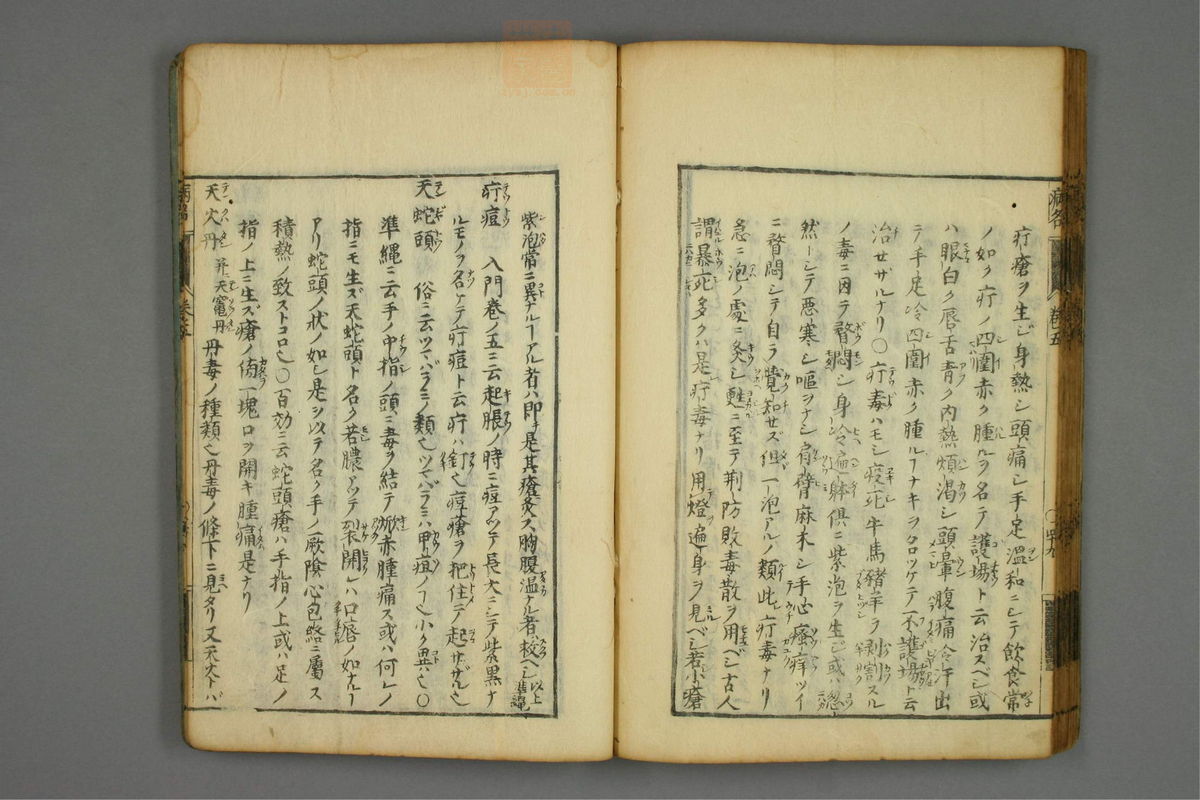 疔瘡ヲ生ジ身熱シ頭痛シ手足溫和ニシテ飲食常
ノ如ク疔ノ四圍赤ク腫ルヲ名テ護場ト云治スベシ或
ハ眼白ク唇舌青ク内熱煩渇シ頭暈腹痛冷汗出
テ手足冷四圍赤ク腫ルヿナキヲ名ツケテ不護場ト云
治セザルナリ〇疔毒ハモシ疫死牛馬猪羊ヲ剥割スル
ノ毒ニ因テ瞀悶シ身冷遍躰俱ニ紫泡ヲ生ジ或ハ忽
然トシテ悪寒シ嘔ヲナシ肩臂麻木シ手心瘙痒ツイ
ニ瞀悶シテ自ラ覺知セズ但一泡アルノ類此疔毒ナリ
急ニ泡ノ處ニ灸シ甦ニ至テ荆防敗毒散ヲ用ベシ古人
謂暴死多クハ是疔毒ナリ用燈遍身ヲ見ベシ若小瘡
紫泡常ニ異ナルヿアル者ハ即チ是其瘡灸ス胸腹温ナル者ハ救ベシ以上準繩
疔痘 入門巻ノ五ニ云起脹ノ時ニ痘アツテ長大ニシテ紫黒ナ
ルモノヲ名ケテ疔痘ト云疔ハ釘也痘瘡ヲ把住テ起サザル也
天蛇頭 俗ニ云ツマバラミノ類也ツマバラミハ甲疽ノ也小ク異ハ也〇
準繩ニ云手ノ中指ノ頭ニ毒ヲ結テ焮赤腫痛ス或ハ何レノ
指ニモ生ズ天蛇頭ト名ク若膿アツテ裂開レハ口唇ノ如ナルヿ
アリ蛇頭ノ狀ノ如シ是ヲ以テ名ク手ノ厥陰心包絡ニ屬ス
積熱ノ致ストコロ也〇百効ニ云蛇頭瘡ハ手指ノ上或ハ足ノ
指ノ上ニ生ズ瘡ノ傍一塊口ヲ開キ腫痛是ナリ
天火丹 并ニ天竈丹 丹毒ノ種類也丹毒ノ條下ニ見タリ又天火トバ
病名
巻五